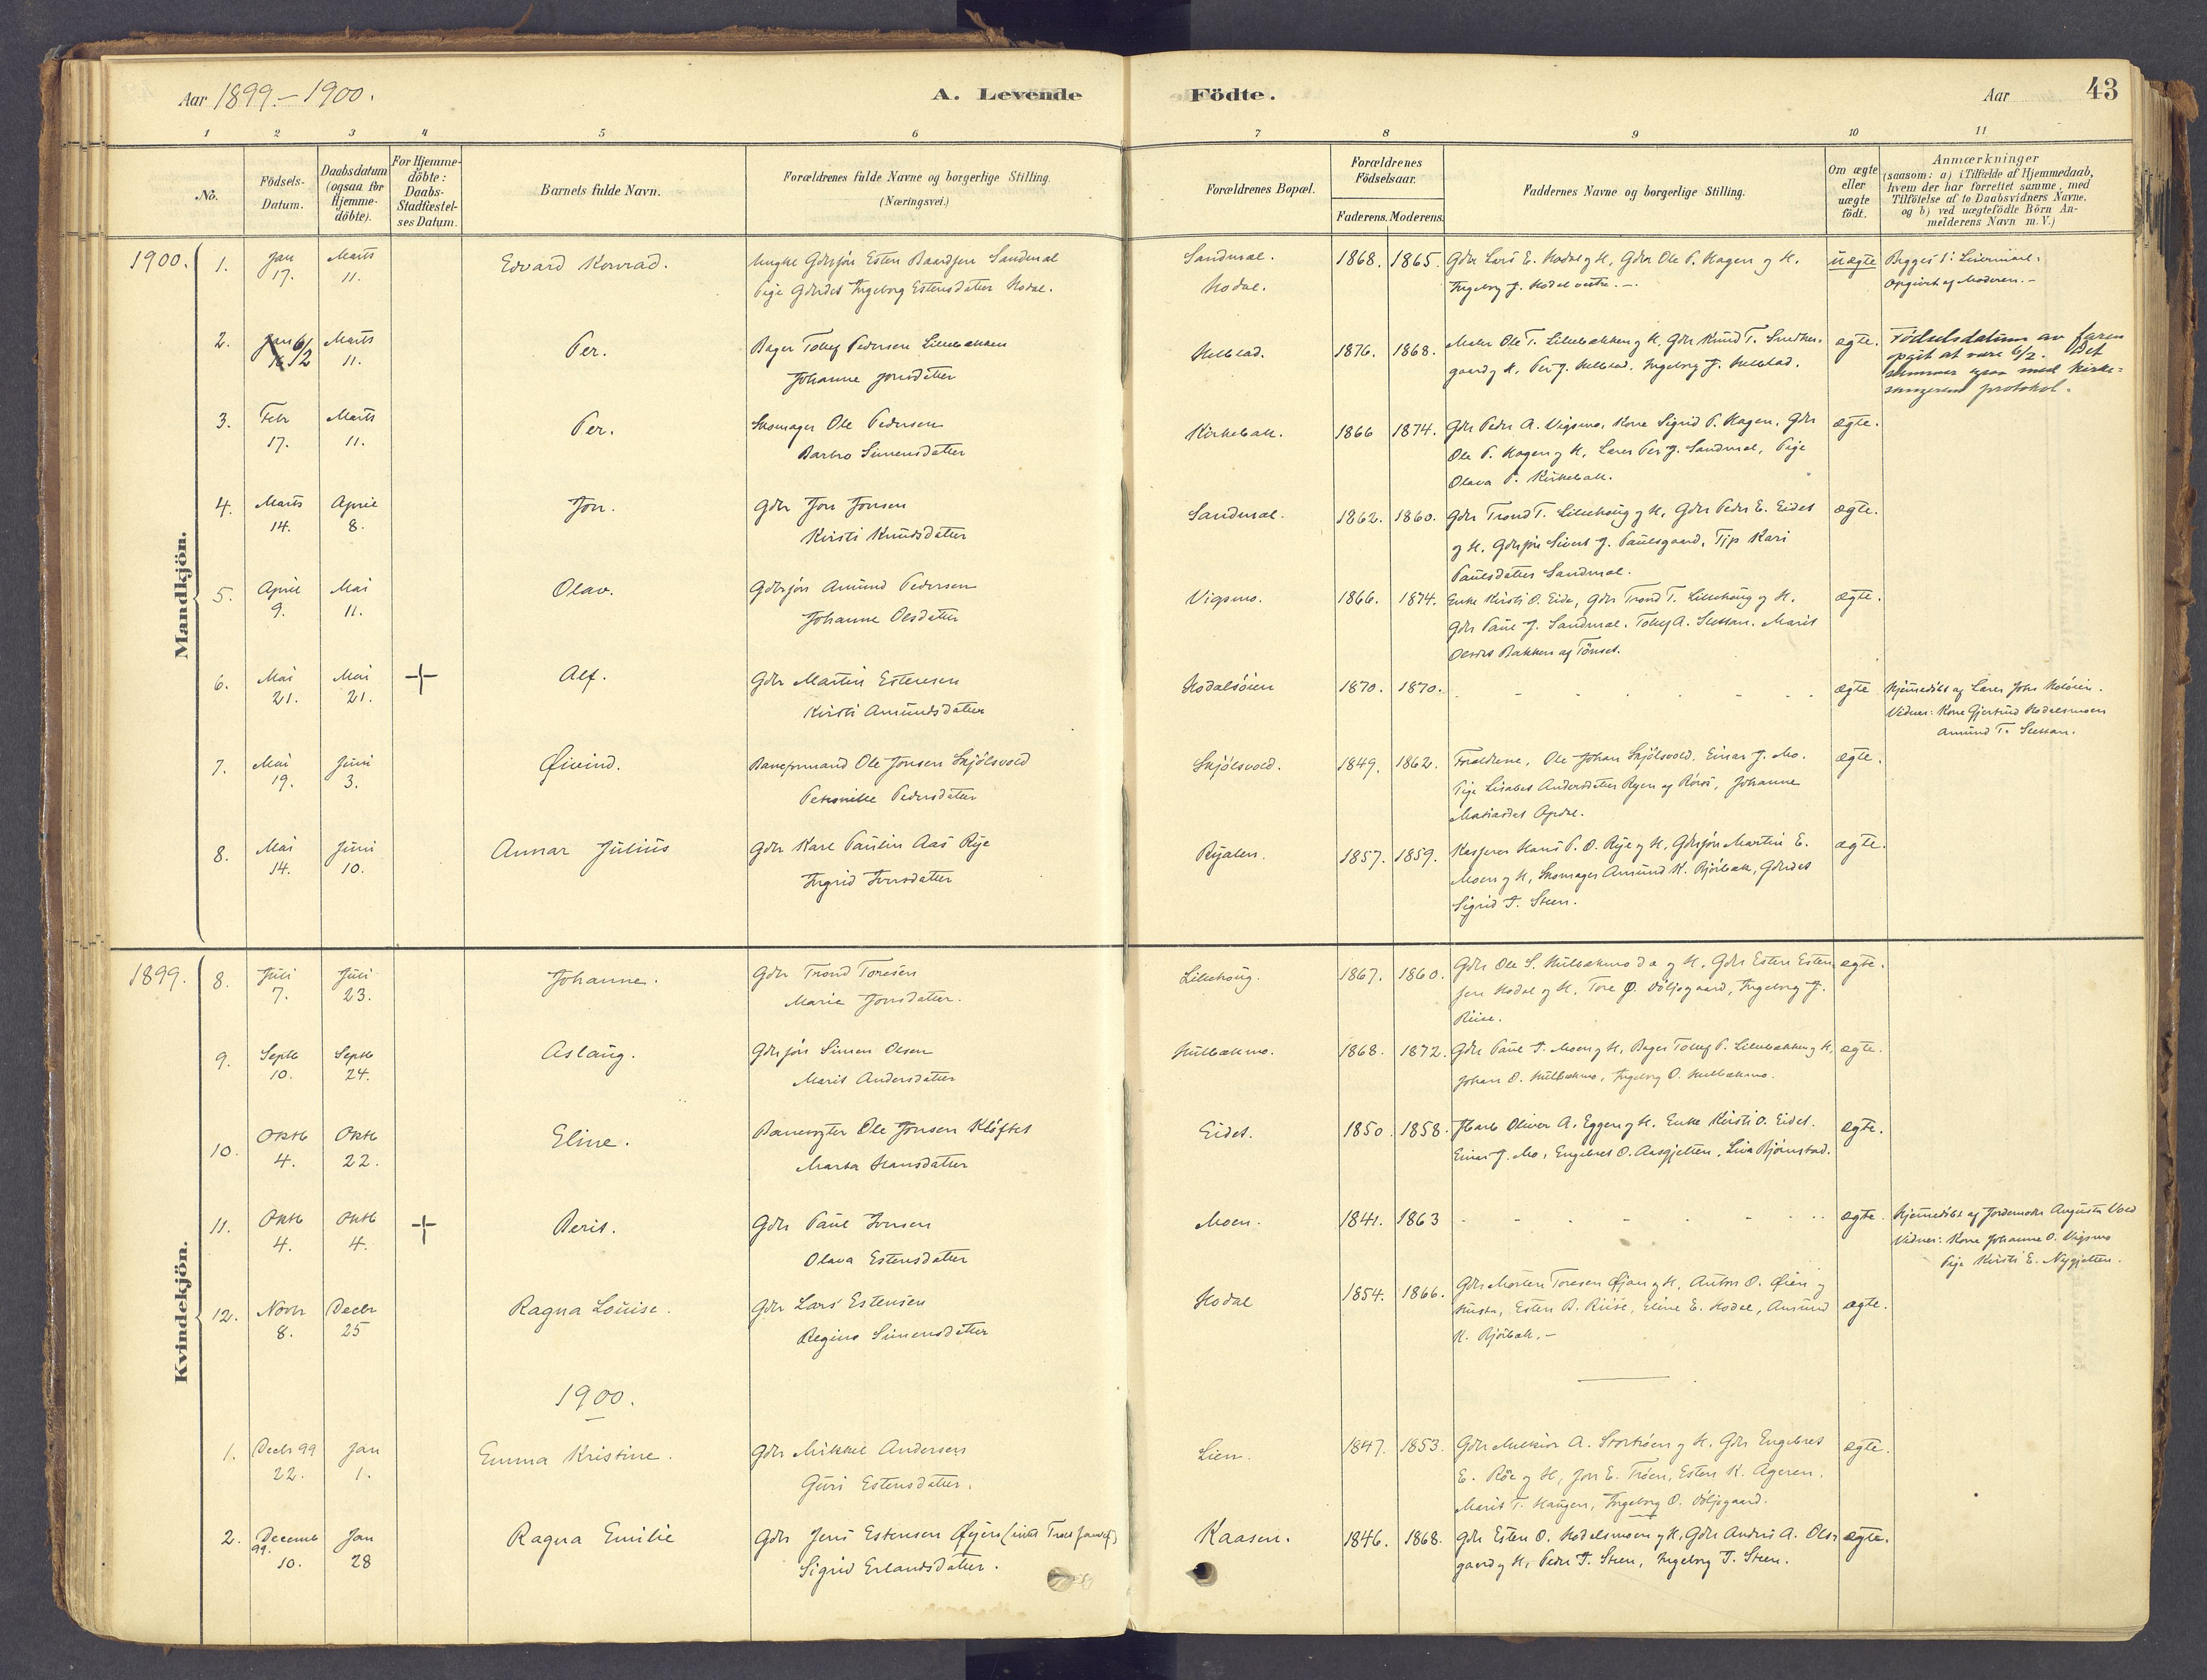 Aar 1899.-1900.
A. Levende Födte.
Aar
43
1 2 3 4 5 6 7 8 9 10 11
No.
Födsels-
Datum.
Daabsdatum
(ogsaa for
Hjemme-
döbte).
For Hjemme-
döbte:
Daabs-
Stadfæstel-
ses Datum.
Barnets fulde Navn.
Forældrenes fulde Navne og borgerlige Stilling.
(Næringsvei.)
Forældrenes Bopæl.
Forældrenes
Födselsaar.
Faderens. Moderens.
Faddernes Navne og borgerlige Stilling.
Om ægte
eller
uægte
födt.
Anmærkninger
(saasom: a) i Tilfælde af Hjemmedaab,
hvem der har forrettet samme, med
Tilföielse af to Daabsvidners Navne,
og b) ved uægtefödte Börn An-
melderens Navn m. V.)
Mandkjön.
1900.
1. Jan Marts Edvard Konrad. Ungkl Gdrsjön Esten Baardsen Sandmæl Sandmæl. 1868. 1865. Gdr Lars E. Hodal og H, Gdr Ole P. Hagen og H. uægte
17. 11. Pige Gdrdet Ingeborg Estensdatter Hodal. Hodal. Ingeborg J. Hodal
opgivet af Moderen.-
2. Jan 6/2 Marts Per. Bager Tollef Pedersen Lillebakken Helblad. 1876. 1868. Maler Ole T. Lillebakken og H. Gdr Knud T. ægte. Födselsdatum av faren
16 11. Johanne Jonsdatter gaard og H. Per J. Helblad. Ingeborg J. Helblad. opgit at være 6/2. Det
stemmer ogsaa med Kirke-
sangerens protokol.
3. Febr Marts Per. Skomager Ole Pedersen Kirkebak. 1866 1874. Gdr Peder A. Vigsmo, Kone Sigrid P. Hagen, Gdr ægte.
17. 11. Barbro Simensdatter Ole P. Hagen og H, Lærer Per J. Sandmæl, Pige
Olava P. Kirkebak.
4. Marts April Jon. Gdr Jon Jonsen Sandmæl. 1862. 1860. Gdr Trond T. Lillehaug og H, Gdr Peder E. Eidet ægte.
14. 8. Kirsti Knudsdatter og H. Gdrsjön Sivert J. Paulsgaard, Kari
Paulsdatter Sandmæl.
5. April Mai Olav. Gdrsjön Amund Pedersen Vigsmo. 1866. 1874. Enke Kirsti O. Eide, Gdr Trond T. Lillehaug og H. ægte.
9. 11. Johanne Olsdatter Gdr Paul J. Sandmæl. Tollef A. Slettan. Marit
Bakken af Tönset.
6. Mai Mai + Alf. Gdr Martin Estensen Hodalsöien 1870. 1870. - - - - - - ægte Hjemmedöbt af Lærer John
21. 21. Kirsti Amundsdatter Vidner: Kone Gjertrud Hodalsmoen
Amund T. Slettan.
7. Mai Juni Øivind. Baneformand Ole Jonsen Skjölsvold Skjölsvold. 1849. 1862. Forældrene, Ole Johan Skjölsvold. Einar J. Mo. ægte.
19. 3. Petronille Pedersdatter Pige Lisabet Andersdatter Ryen af Röros, Johanne
8. Mai Juni Annar Julius Gdr Karl Paulin Aas Rye Ryalen. 1857. 1859. Kasserer Hans P. O. Rye og H, Gdrsjön Martin E. ægte.
14. 10. Ingrid Iversdatter Moen og H, Skomager Amund K. Björbak, Gdrdet
Sigrid T. Steen.
Kvindekjön.
1899.
8. Juli Juli Johanne. Gdr Trond Toresen Lillehaug. 1867. 1860. Gdr Ole S. Hulbækmo og H. Gdr Esten Esten- ægte.
7. 23. Marie Jonsdatter. sen Hodal og H. Tore Ø. Völjogaard, Ingeborg J.
Riise.
9. Septb Septb Aslaug. Gdrsjön Simen Olsen Hulbækmo. 1868. 1872. Gdr Paul I. Moen og H, Bager Tollef P. Lillebakken og H, ægte.
10. 24. Marit Andersdatter Johan O. Hulbækmo, Ingeborg O. Hulbækmo.
10. Oktb Oktb Eline. Banevogter Ole Jonsen Klöftet Eidet. 1850. 1858. Oliver A. Eggen og H. Enke Kirsti O. Eidet. ægte.
4. 22. Marta Hansdatter Einar J. Mo, Engebret O. Aasgjetten, Bjørnstad.
11. Oktb Oktb + Berit. Gdr Paul Iversen Moen. 1841. 1863 - - - - - - ægte. Hjemmedöbt af Jordemoder Augusta Vold
4. 4. Olava Estensdatter Vidner: Kone Johanne O. Vigsmo
Pige Kirsti E. Nygjetten.
12. Novbr Decbr Ragna Louise. Gdr Lars Estensen Hodal 1854. 1866. Gdr Morten Toresen Øjan og H, Anton O. Øien og ægte.
8. 25 Regine Simensdatter Hustr, Esten B. Riise, Eline E. Hodal, Amund
K. Björbak.-
1900.
1. Decbr 99 Jan Emma Kristine. Gdr Mikkel Andersen Lien. 1847. 1853. Gdr Melkior A. Stortröen og H. Gdr Engebret ægte.
22. 1. Guri Estensdatter. E. Röe og H, Jon E. Tröen, Esten K. Ageren.
Marit T. Haugen, Ingeborg O. Völjogaard.
2. Decemb Jan Ragna Emilie Gdr Jens Estensen Øyen Kaasen. 1846. 1868. Gdr Esten O. Hodalsmoen og H, Gdr Anders A. Ols- ægte.
99. 10. 28 Sigrid Erlandsdatter. gaard og H, Peder T. Steen, Ingeborg T. Steen.